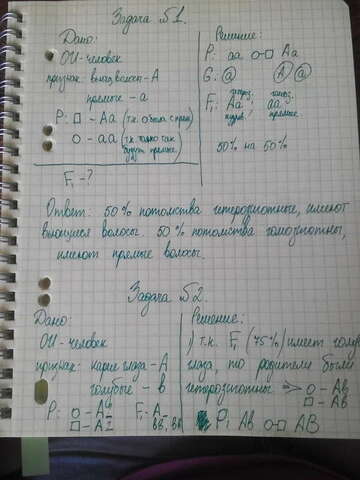 Задача №1.
Дано:
ОИ-человек
признак: вьющ. волосы - А
прямые - а
P: □ - Аа (т.к. у
○ - аа (т.к. только так
будут прямые)
F₁ - ?
Решение:
P: аа ○-□ Аа
G: а А а
F₁: Аа; аа
прямые
50% на 50%
Ответ: 50% потомства гетерозиготные, имеют
вьющиеся волосы. 50% потомства гомозиготны,
имеют прямые волосы.
Задача №2.
Дано:
ОИ-человек
признак: карие глаза - А
голубые - в
P: ○ - А
□ - А
F₁ - А
Решение:
1) т.к. F₁ (75%) имеет голуб
глаза, то родители были
гетерозиготные => ○ - Ав
□ - Ав
P₁ Ав ○-□ АВ